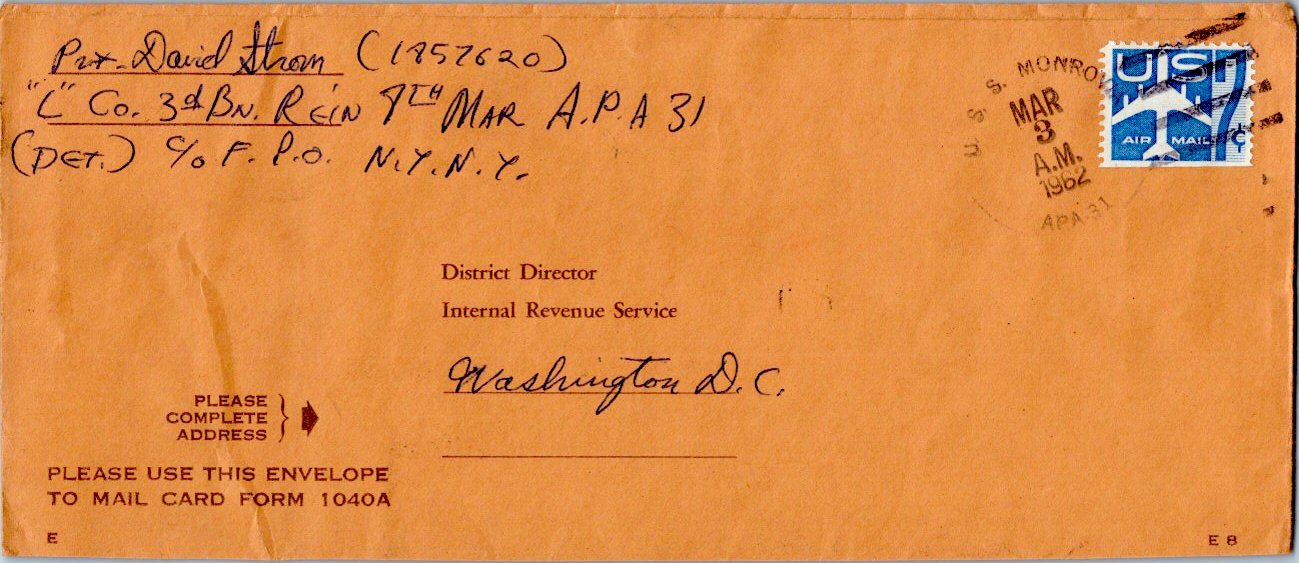 Pvt. David Strom (1857620)
"L" Co. 3d Bn. Rein 8TH Mar A.P.A 31
(Det.) c/o F.P.O. N.Y.N.Y.
U.S.S. MONROVIA
MAR
3
A.M.
1962
APA-31
US
7¢
AIR MAIL
District Director
Internal Revenue Service
Washington D.C.
PLEASE
COMPLETE
ADDRESS
PLEASE USE THIS ENVELOPE
TO MAIL CARD FORM 1040A
E
E 8